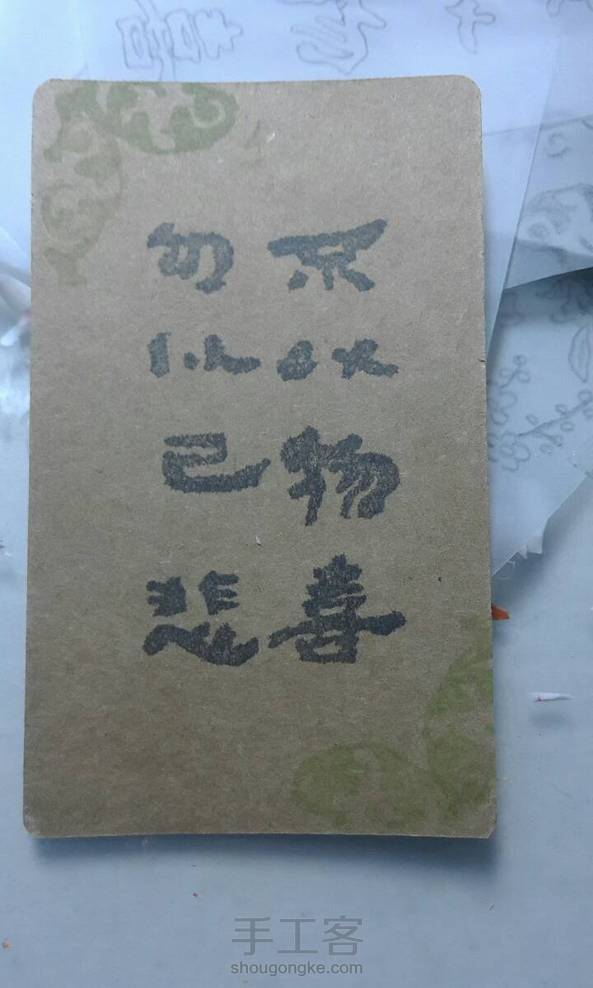 不以物喜
勿以己悲
手工客
shougongke.com